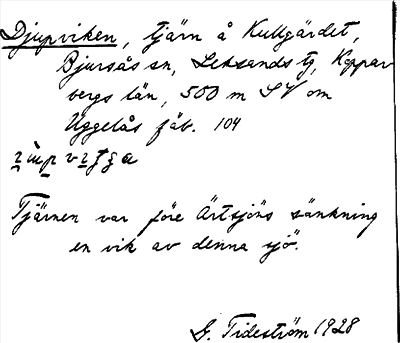 Djupviken, tjärn å Kullgärdet,
Bjursås sn, Leksands tg, Koppar
bergs län, 500 m SV om
Uggelås fäb. 104
Tjärnen var före Ärtsjöns sänkning
en vik av denna sjö.
G. Tideström 1928